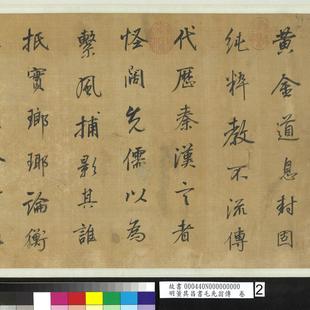 黃金道息封固
純粹教不流傳
代歷秦漢言者
怪闊先儒以為
繫風捕影其誰
抵實瑯瑯論衡
故書000440N000000000
明董其昌書毛先舒傳 卷
2